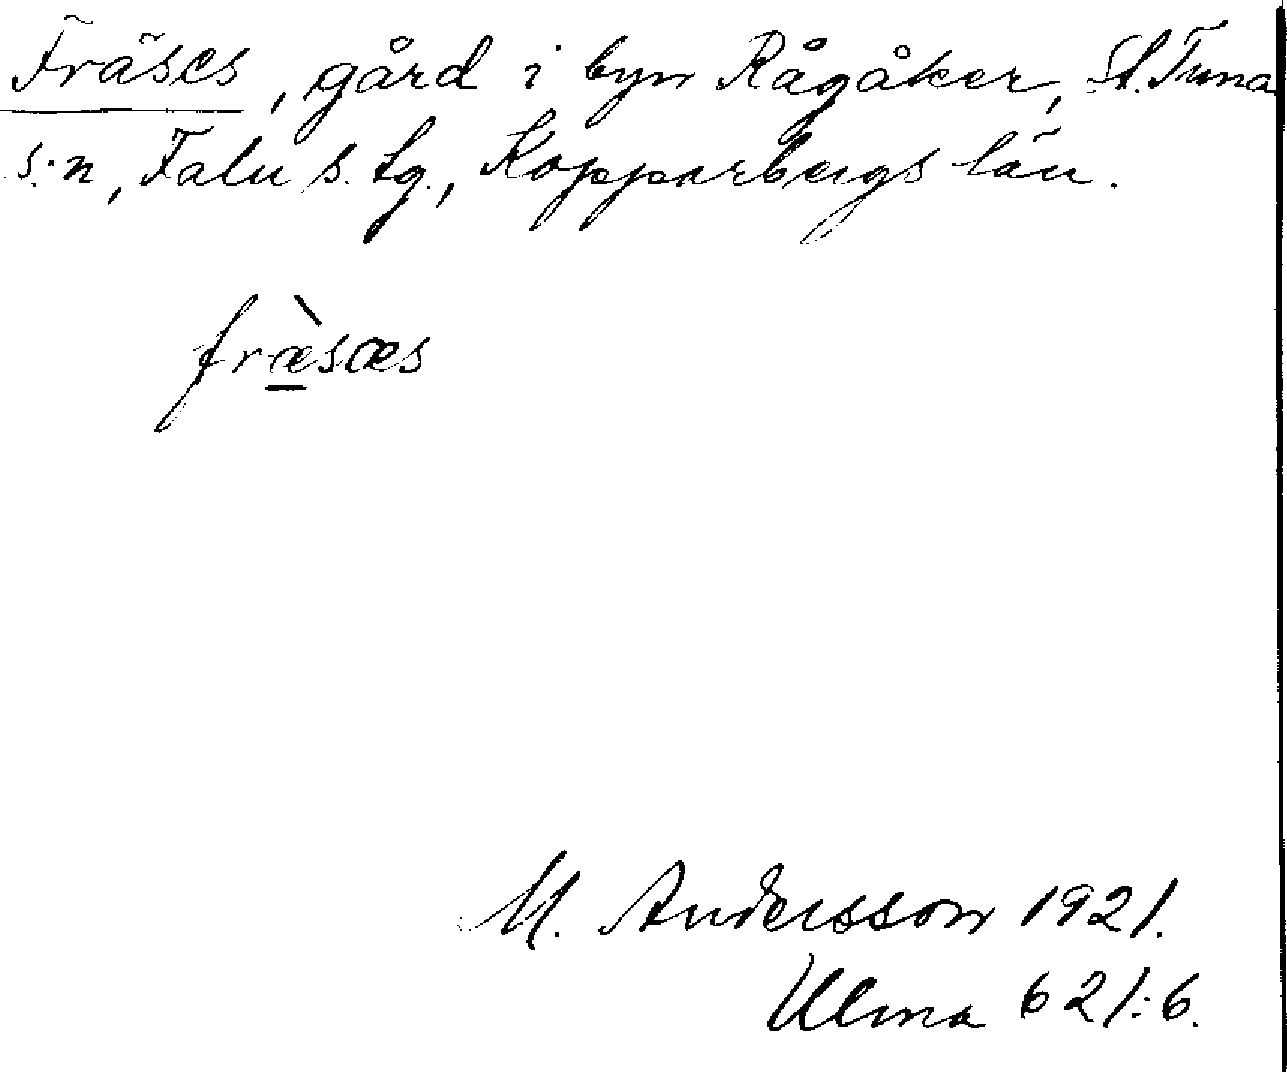 Fräses, gård i byn Rågåker, St. Tuna
s:n, Falu s. tg., Kopparbergs län.
fræ�_̀sæs
M. Andersson 1921.
Ulma 621:6.